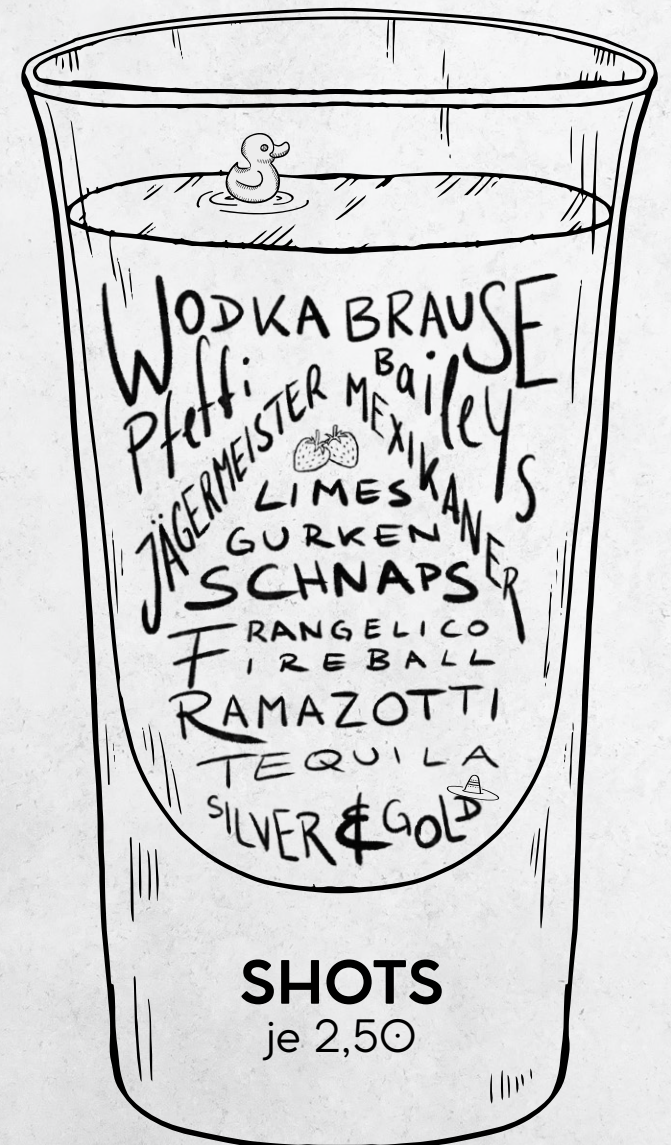 WODKA BRAUSE
Pfeffi
Baileys
JÄGERMEISTER
MEXIKANER
LIMES
GURKEN
SCHNAPS
FRANGELICO
FIREBALL
RAMAZOTTI
TEQUILA
SILVER & GOLD
SHOTS
je 2,50